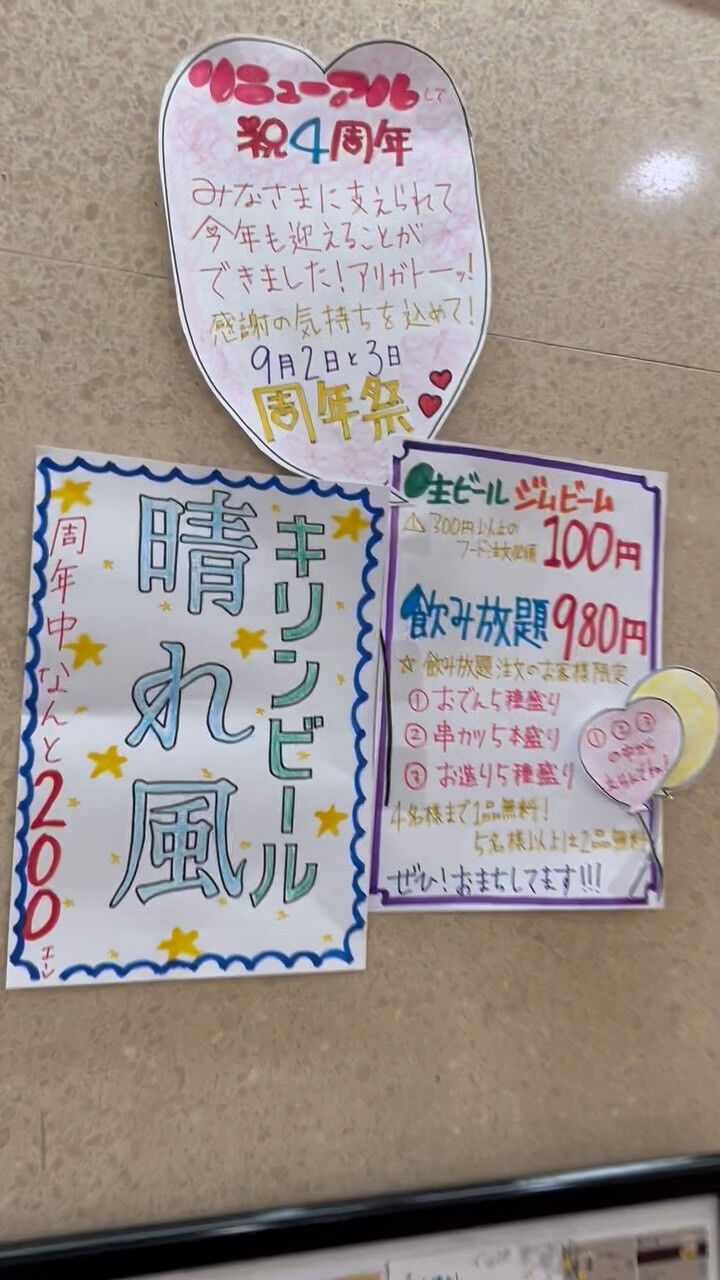 リニューアルして
祝4周年
みなさまに支えられて
今年も迎えることが
できました!アリガトーッ!
感謝の気持ちを込めて!
9月2日と3日
周年祭
キリンビール
晴れ風
周年中なんと200エン
生ビール ジムビーム
⚠300円以上の
フード注文必須
100円
飲み放題 980円
☆飲み放題注文のお客様限定
①おでん5種盛り
②串カツ5本盛り
③お造り5種盛り
①②③
の中から
えらんでね!
4名様まで1品無料!
5名様以上は2品無料
ぜひ!おまちしてます!!!